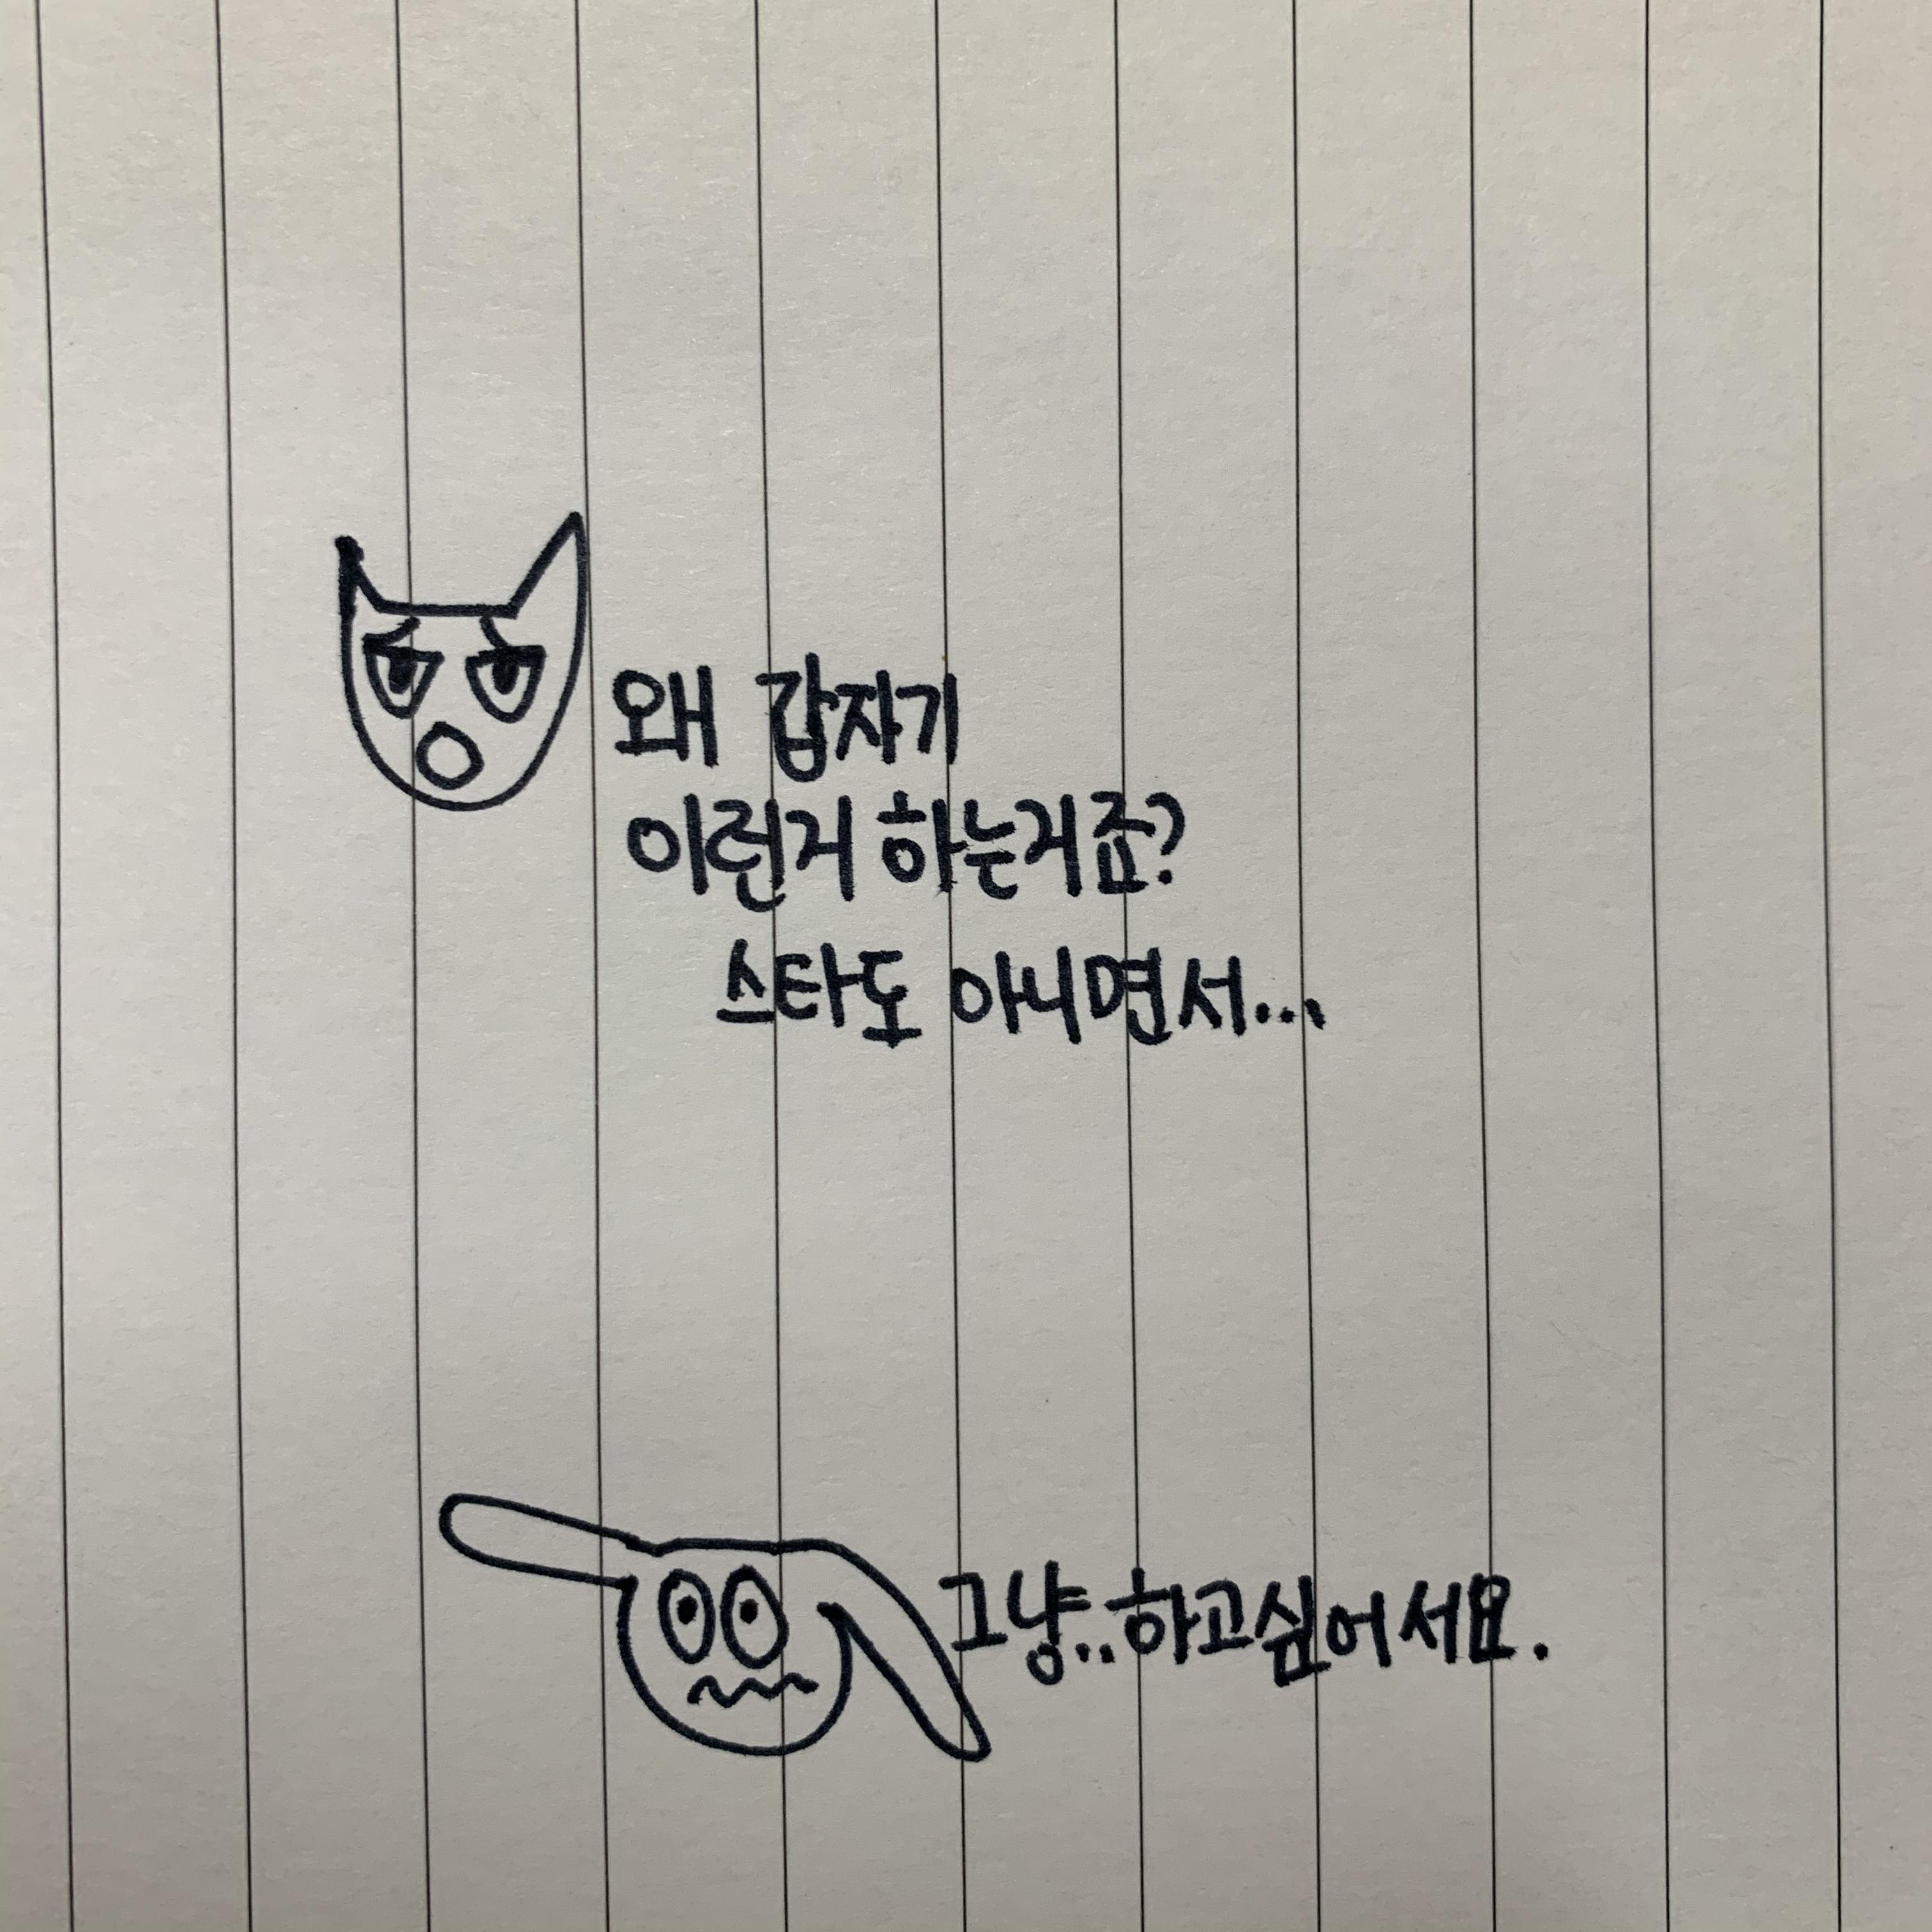 왜 갑자기
이런거 하는거죠?
스타도 아니면서...
그냥..하고싶어서요.